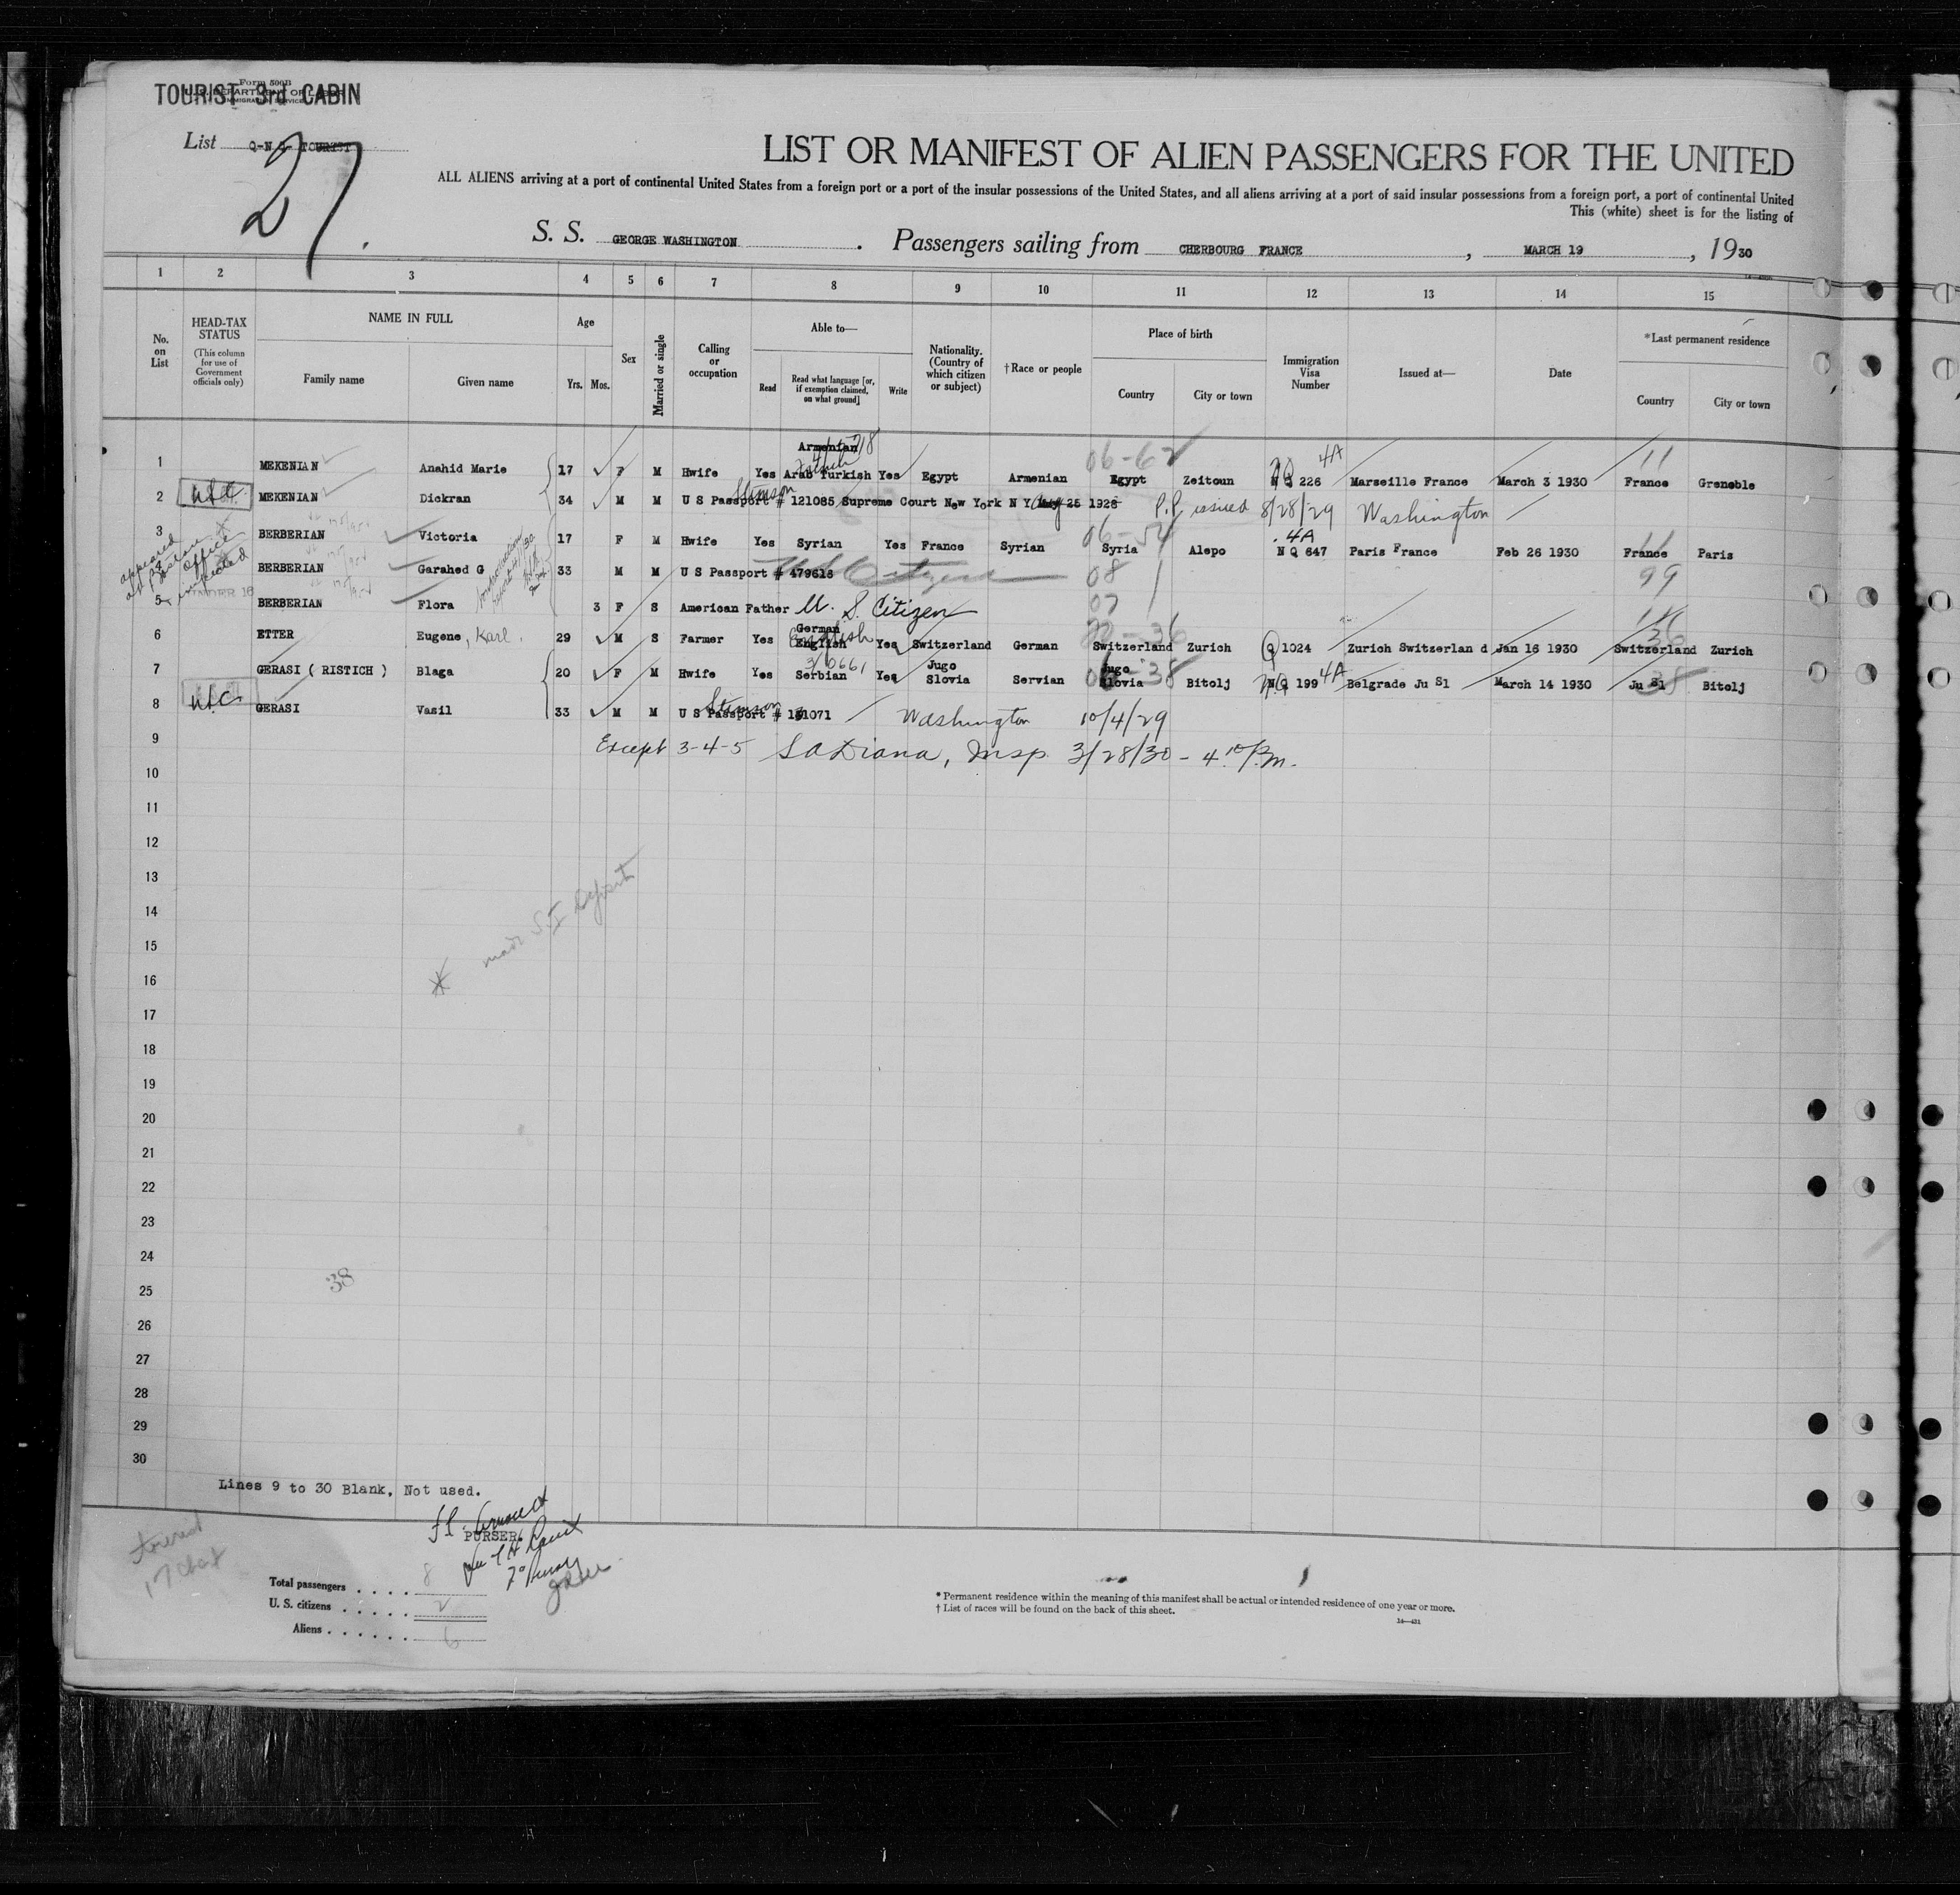 TOURIST 3rd CABIN
Form 500B
U. S. DEPARTMENT OF LABOR
IMMIGRATION SERVICE
List Q-N Q- TOURIST
27
LIST OR MANIFEST OF ALIEN PASSENGERS FOR THE UNITED
ALL ALIENS arriving at a port of continental United States from a foreign port or a port of the insular possessions of the United States, and all aliens arriving at a port of said insular possessions from a foreign port, a port of continental United
This (white) sheet is for the listing of
S. S. GEORGE WASHINGTON . Passengers sailing from CHERBOURG FRANCE , MARCH 19 , 1930
1 2 3 4 5 6 7 8 9 10 11 12 13 14 15
No. on List
HEAD-TAX STATUS (This column for use of Government officials only)
NAME IN FULL
Family name Given name
Age
Yrs. Mos.
Sex
Married or single
Calling or occupation
Able to—
Read Read what language [or, if exemption claimed, on what ground] Write
Nationality. (Country of which citizen or subject)
†Race or people
Place of birth
Country City or town
Immigration Visa Number
Issued at—
Date
*Last permanent residence
Country City or town
Armenian 06-62 4A 11
1 MEKENIAN Anahid Marie 17 F M Hwife Yes Arab Turkish Yes Egypt Armenian Egypt Zeitoun N Q 226 Marseille France March 3 1930 France Grenoble
2 MEKENIAN Dickran 34 M M U S Passport # 121085 Supreme Court New York N Y May 25 1926 P.P. issued 8/28/29 Washington
Stimson
06-54 4A 11
3 BERBERIAN Victoria 17 F M Hwife Yes Syrian Yes France Syrian Syria Alepo N Q 647 Paris France Feb 26 1930 France Paris
appeared at Boston Office
4 BERBERIAN Garahed G 33 M M U S Passport # 479616 US Citizen 08 99
UNDER 16
5 BERBERIAN Flora 3 F S American Father U. S. Citizen 07
German
6 ETTER Eugene, Karl. 29 M S Farmer Yes English Yes Switzerland German Switzerland Zurich Q 1024 Zurich Switzerlan d Jan 16 1930 Switzerland Zurich
7 GERASI ( RISTICH ) Blaga 20 F M Hwife Yes Serbian Yes Jugo Slovia Servian Jugo Slovia Bitolj N Q 199 4A Belgrade Ju Sl March 14 1930 Ju Sl Bitolj
Stimson
8 GERASI Vasil 33 M M U S Passport # 131071 Washington 10/4/29
9 Except 3-4-5 S A Diana, Insp. 3/28/30 - 4:10 P.m.
10
11
12
13
14
15
16
17
18
19
20
21
22
23
24
25
26
27
28
29
30
38
Lines 9 to 30 Blank, Not used.
PURSER
Total passengers . . . . 8
U. S. citizens . . . . . 2
Aliens . . . . . . 6
* Permanent residence within the meaning of this manifest shall be actual or intended residence of one year or more.
† List of races will be found on the back of this sheet.
14—431